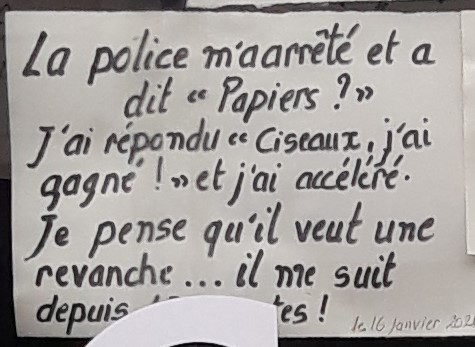 La police m'a arrêté et a
dit « Papiers ? »
J'ai répondu « Ciseaux, j'ai
gagné ! » et j'ai accéléré.
Je pense qu'il veut une
revanche... il me suit
depuis
le 16 janvier